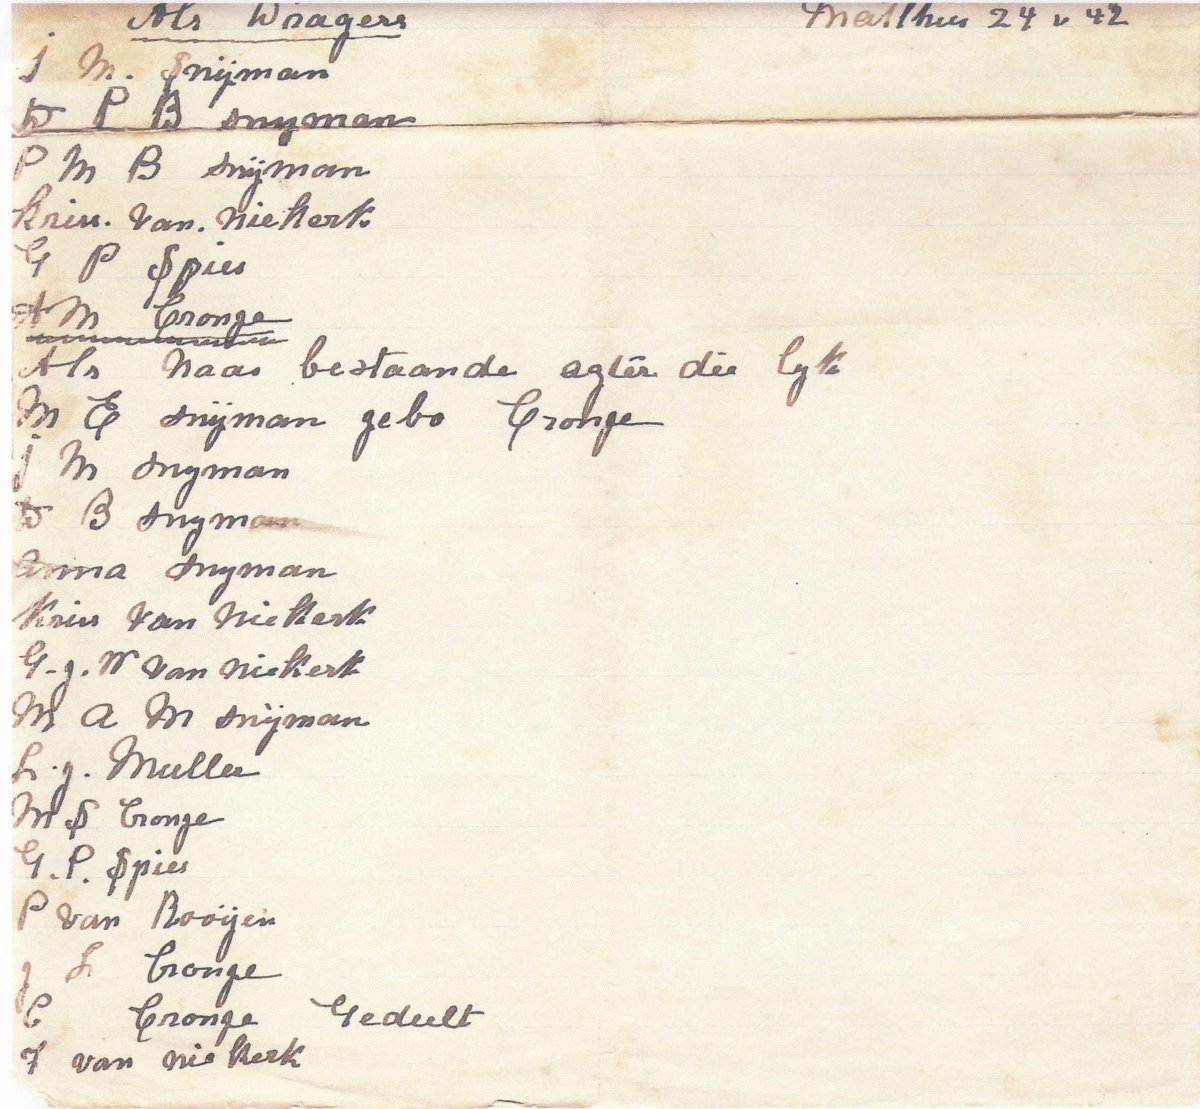 Als Dragers Matthus 24 v 42
J M. Snÿman
D P B snyman
P M B snÿman
Kriss. van. Niekerk
G P Spies
A M Cronge
Als Naas bestaande agter die lyk
M E snÿman gebo Cronge
J M snyman
D B snyman
anna snyman
Kriss van Niekerk
G. J. W van Niekerk
M A M snÿman
L. J. Muller
M S Cronge
G. P. Spies
P van Rooÿen
J L Cronge
C Cronge Gedeelt
F van niekerk